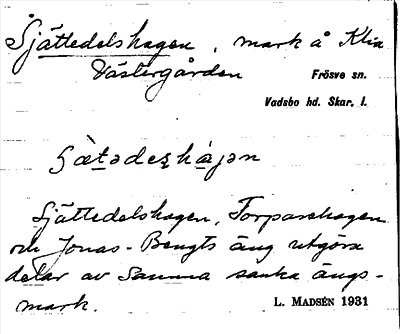 Sjättedelshagen, mark å Klia
Västergården
Frösve sn.
Vadsbo hd. Skar. l.
Sjättedelshagen, Torparehagen
och Jonas-Bengts äng utgöra
delar av samma sanka ängs-
mark.
L. MADSÉN 1931